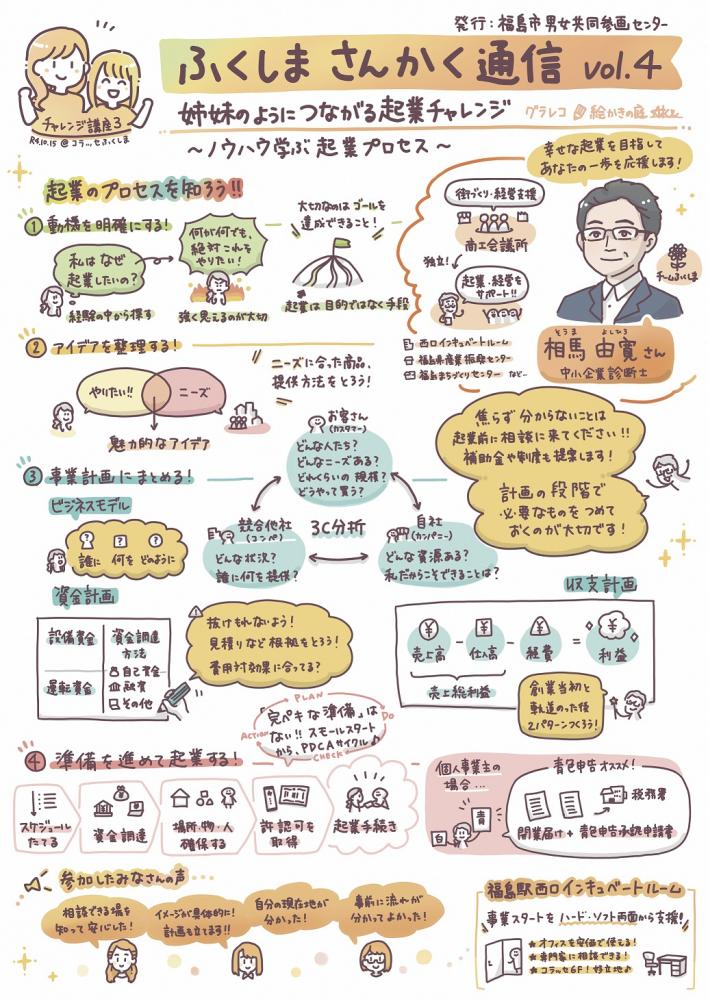 発行：福島市男女共同参画センター
ふくしま さんかく通信 vol.4
チャレンジ講座3
R4.10.15 @コラッセふくしま
姉妹のようにつながる起業チャレンジ
グラレコ 絵かきの庭
～ノウハウ学ぶ 起業プロセス～
幸せな起業を目指して
あなたの一歩を応援します！
街づくり・経営支援
商工会議所
独立！
起業・経営を
サポート!!
チームふくしま
西口インキュベートルーム
福島県産業振興センター
福島まちづくりセンター など…
そうま よしひろ
相馬 由寛さん
中小企業診断士
起業のプロセスを知ろう!!
① 動機を明確にする！
私はなぜ
起業したいの？
経験の中から探す
何が何でも、
絶対これを
やりたい！
強く思えるのが大切
大切なのは ゴールを
達成できること！
起業は目的ではなく手段
② アイデアを整理する！
やりたい!!
ニーズ
魅力的なアイデア
ニーズに合った商品、
提供方法をとろう！
焦らず分からないことは
起業前に相談に来てください!!
補助金や制度も提案します！
計画の段階で
必要なものをつめて
おくのが大切です！
③ 事業計画にまとめる！
ビジネスモデル
誰に 何を どのように
お客さん
(カスタマー)
どんな人たち？
どんなニーズある？
どれくらいの規模？
どうやって買う？
3C分析
競合他社
(コンペ)
どんな状況？
誰に何を提供？
自社
(カンパニー)
どんな資源ある？
私だからこそできることは？
資金計画
設備資金
運転資金
資金調達
方法
自己資金
融資
その他
抜けもれないよう！
見積りなど根拠をとろう！
費用対効果に合ってる？
収支計画
売上高 - 仕入高 - 経費 = 利益
売上総利益
創業当初と
軌道のった後
2パターンつくろう！
PLAN
DO
CHECK
ACTION
「完ペキな準備」は
ない!! スモールスタート
から、PDCAサイクル♪
④ 準備を進めて起業する！
スケジュール
たてる
資金調達
場所・物・人
確保する
許認可を
取得
起業手続き
個人事業主の
場合…
青
白
青色申告オススメ！
税務署
開業届け + 青色申告承認申請書
参加したみなさんの声
相談できる場を
知って安心した！
イメージが具体的に！
計画も立てます!!
自分の現在地が
分かった！
事前に流れが
分かってよかった！
福島駅西口インキュベートルーム
事業スタートを ハード・ソフト両面から支援！
★オフィスを安価で使える！
★専門家に相談できる！
★コラッセ6F！好立地♪